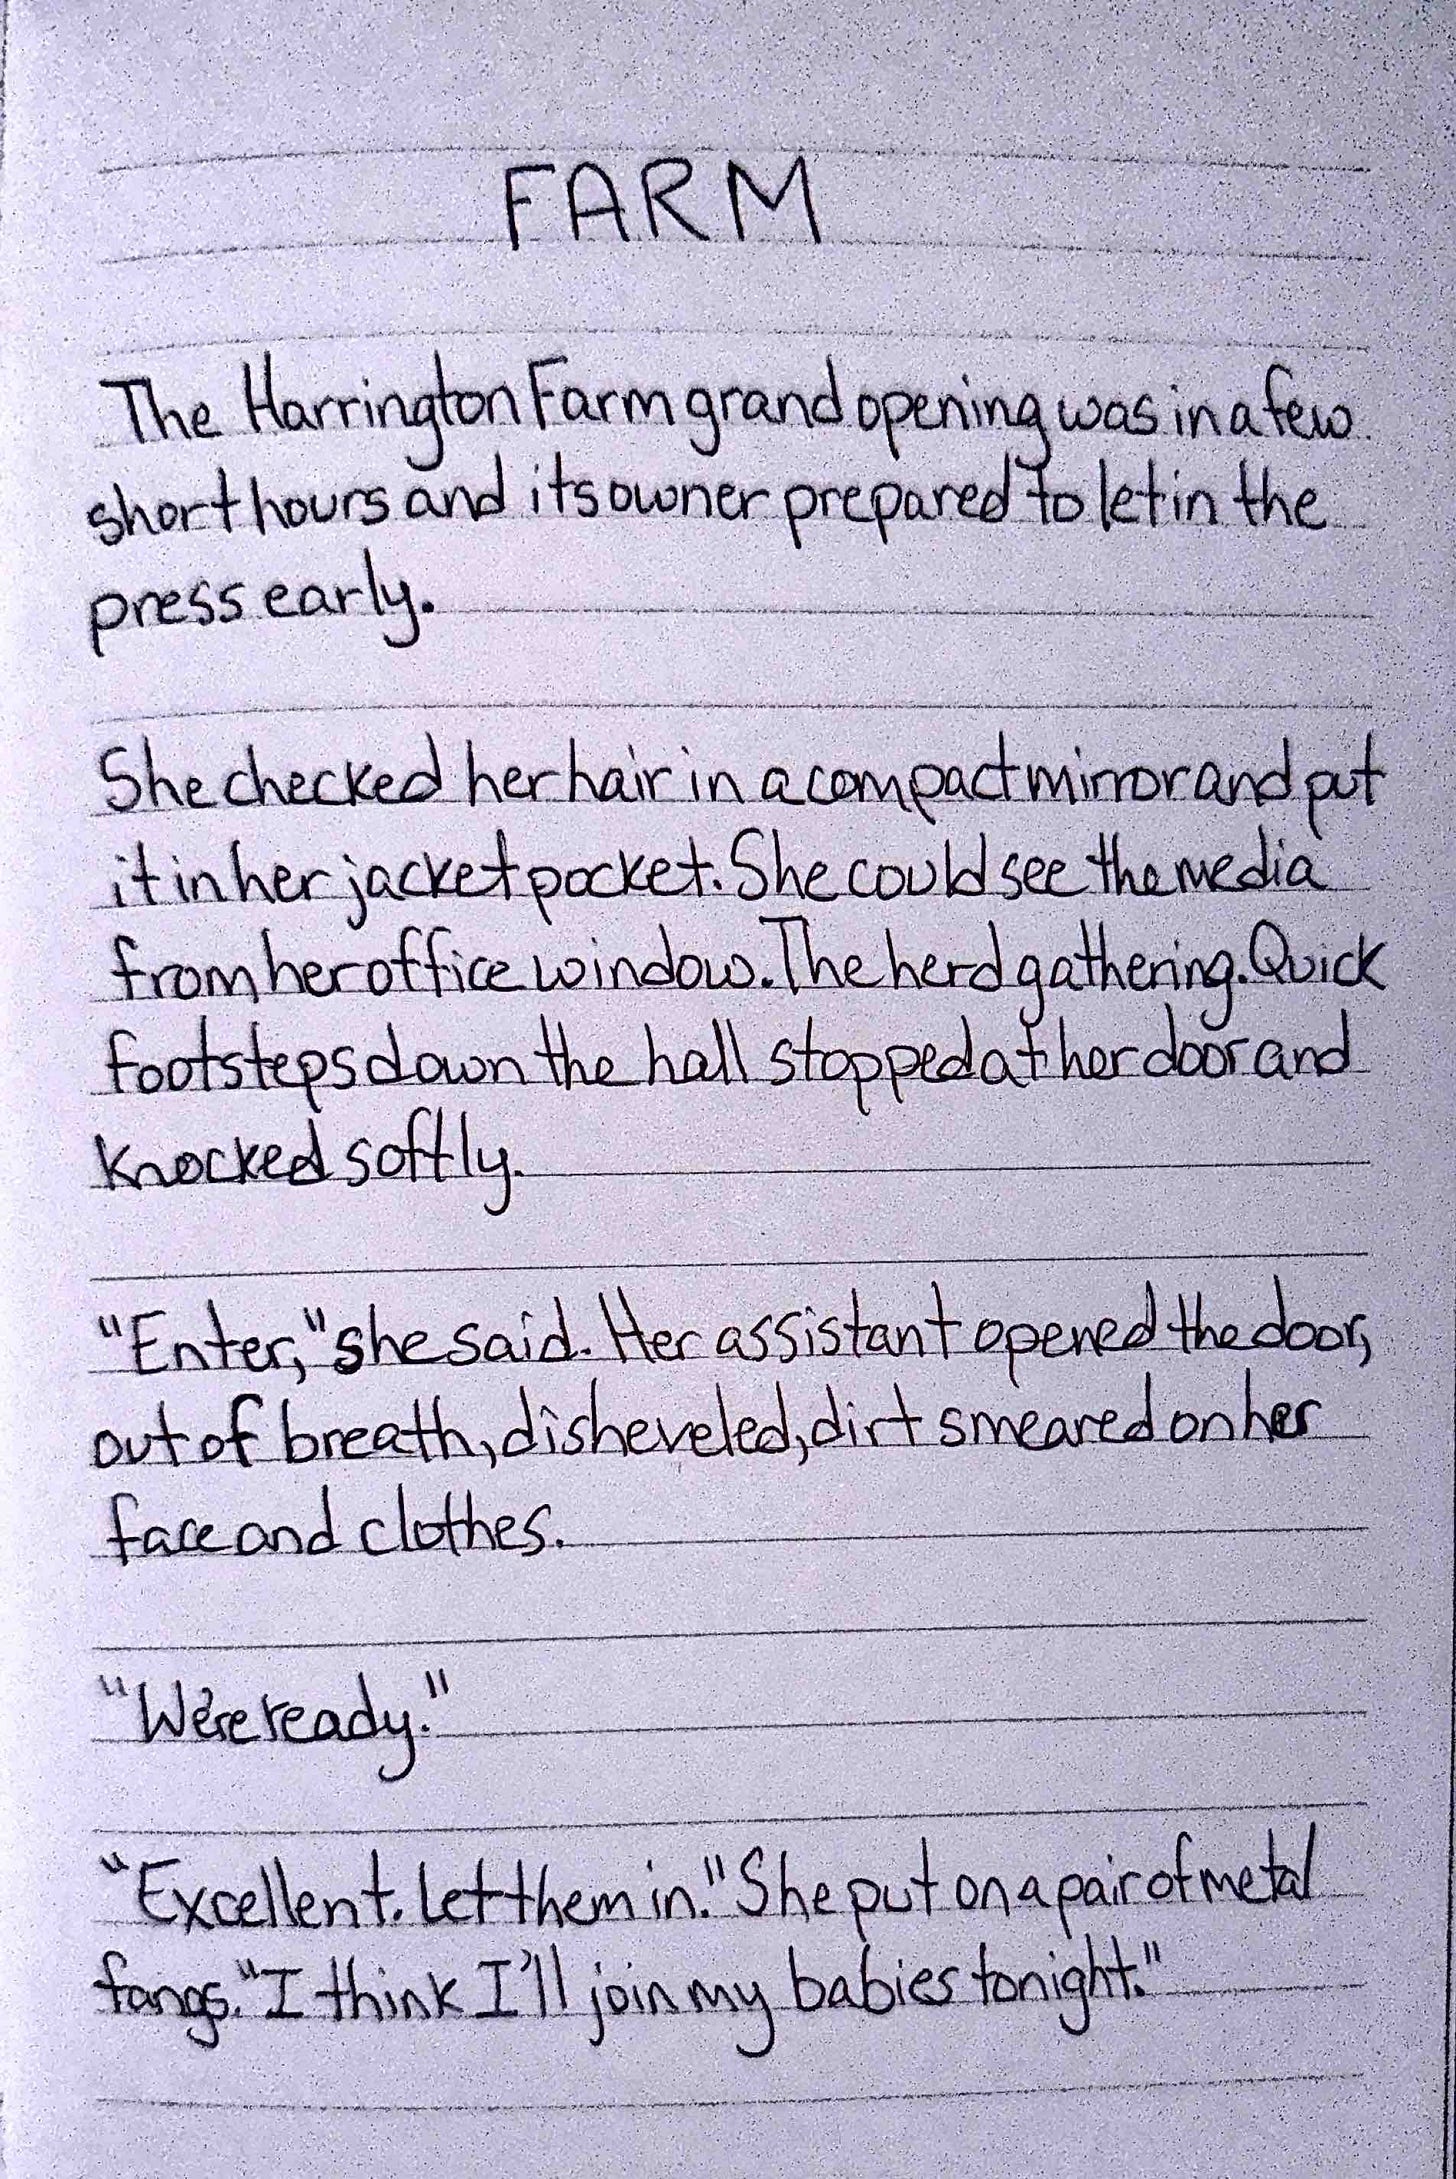 FARM
The Harrington Farm grand opening was in a few
short hours and its owner prepared to let in the
press early.
She checked her hair in a compact mirror and put
it in her jacket pocket. She could see the media
from her office window. The herd gathering. Quick
footsteps down the hall stopped at her door and
knocked softly.
"Enter," she said. Her assistant opened the door,
out of breath, disheveled, dirt smeared on her
face and clothes.
"We're ready."
"Excellent. Let them in." She put on a pair of metal
fangs. "I think I'll join my babies tonight."